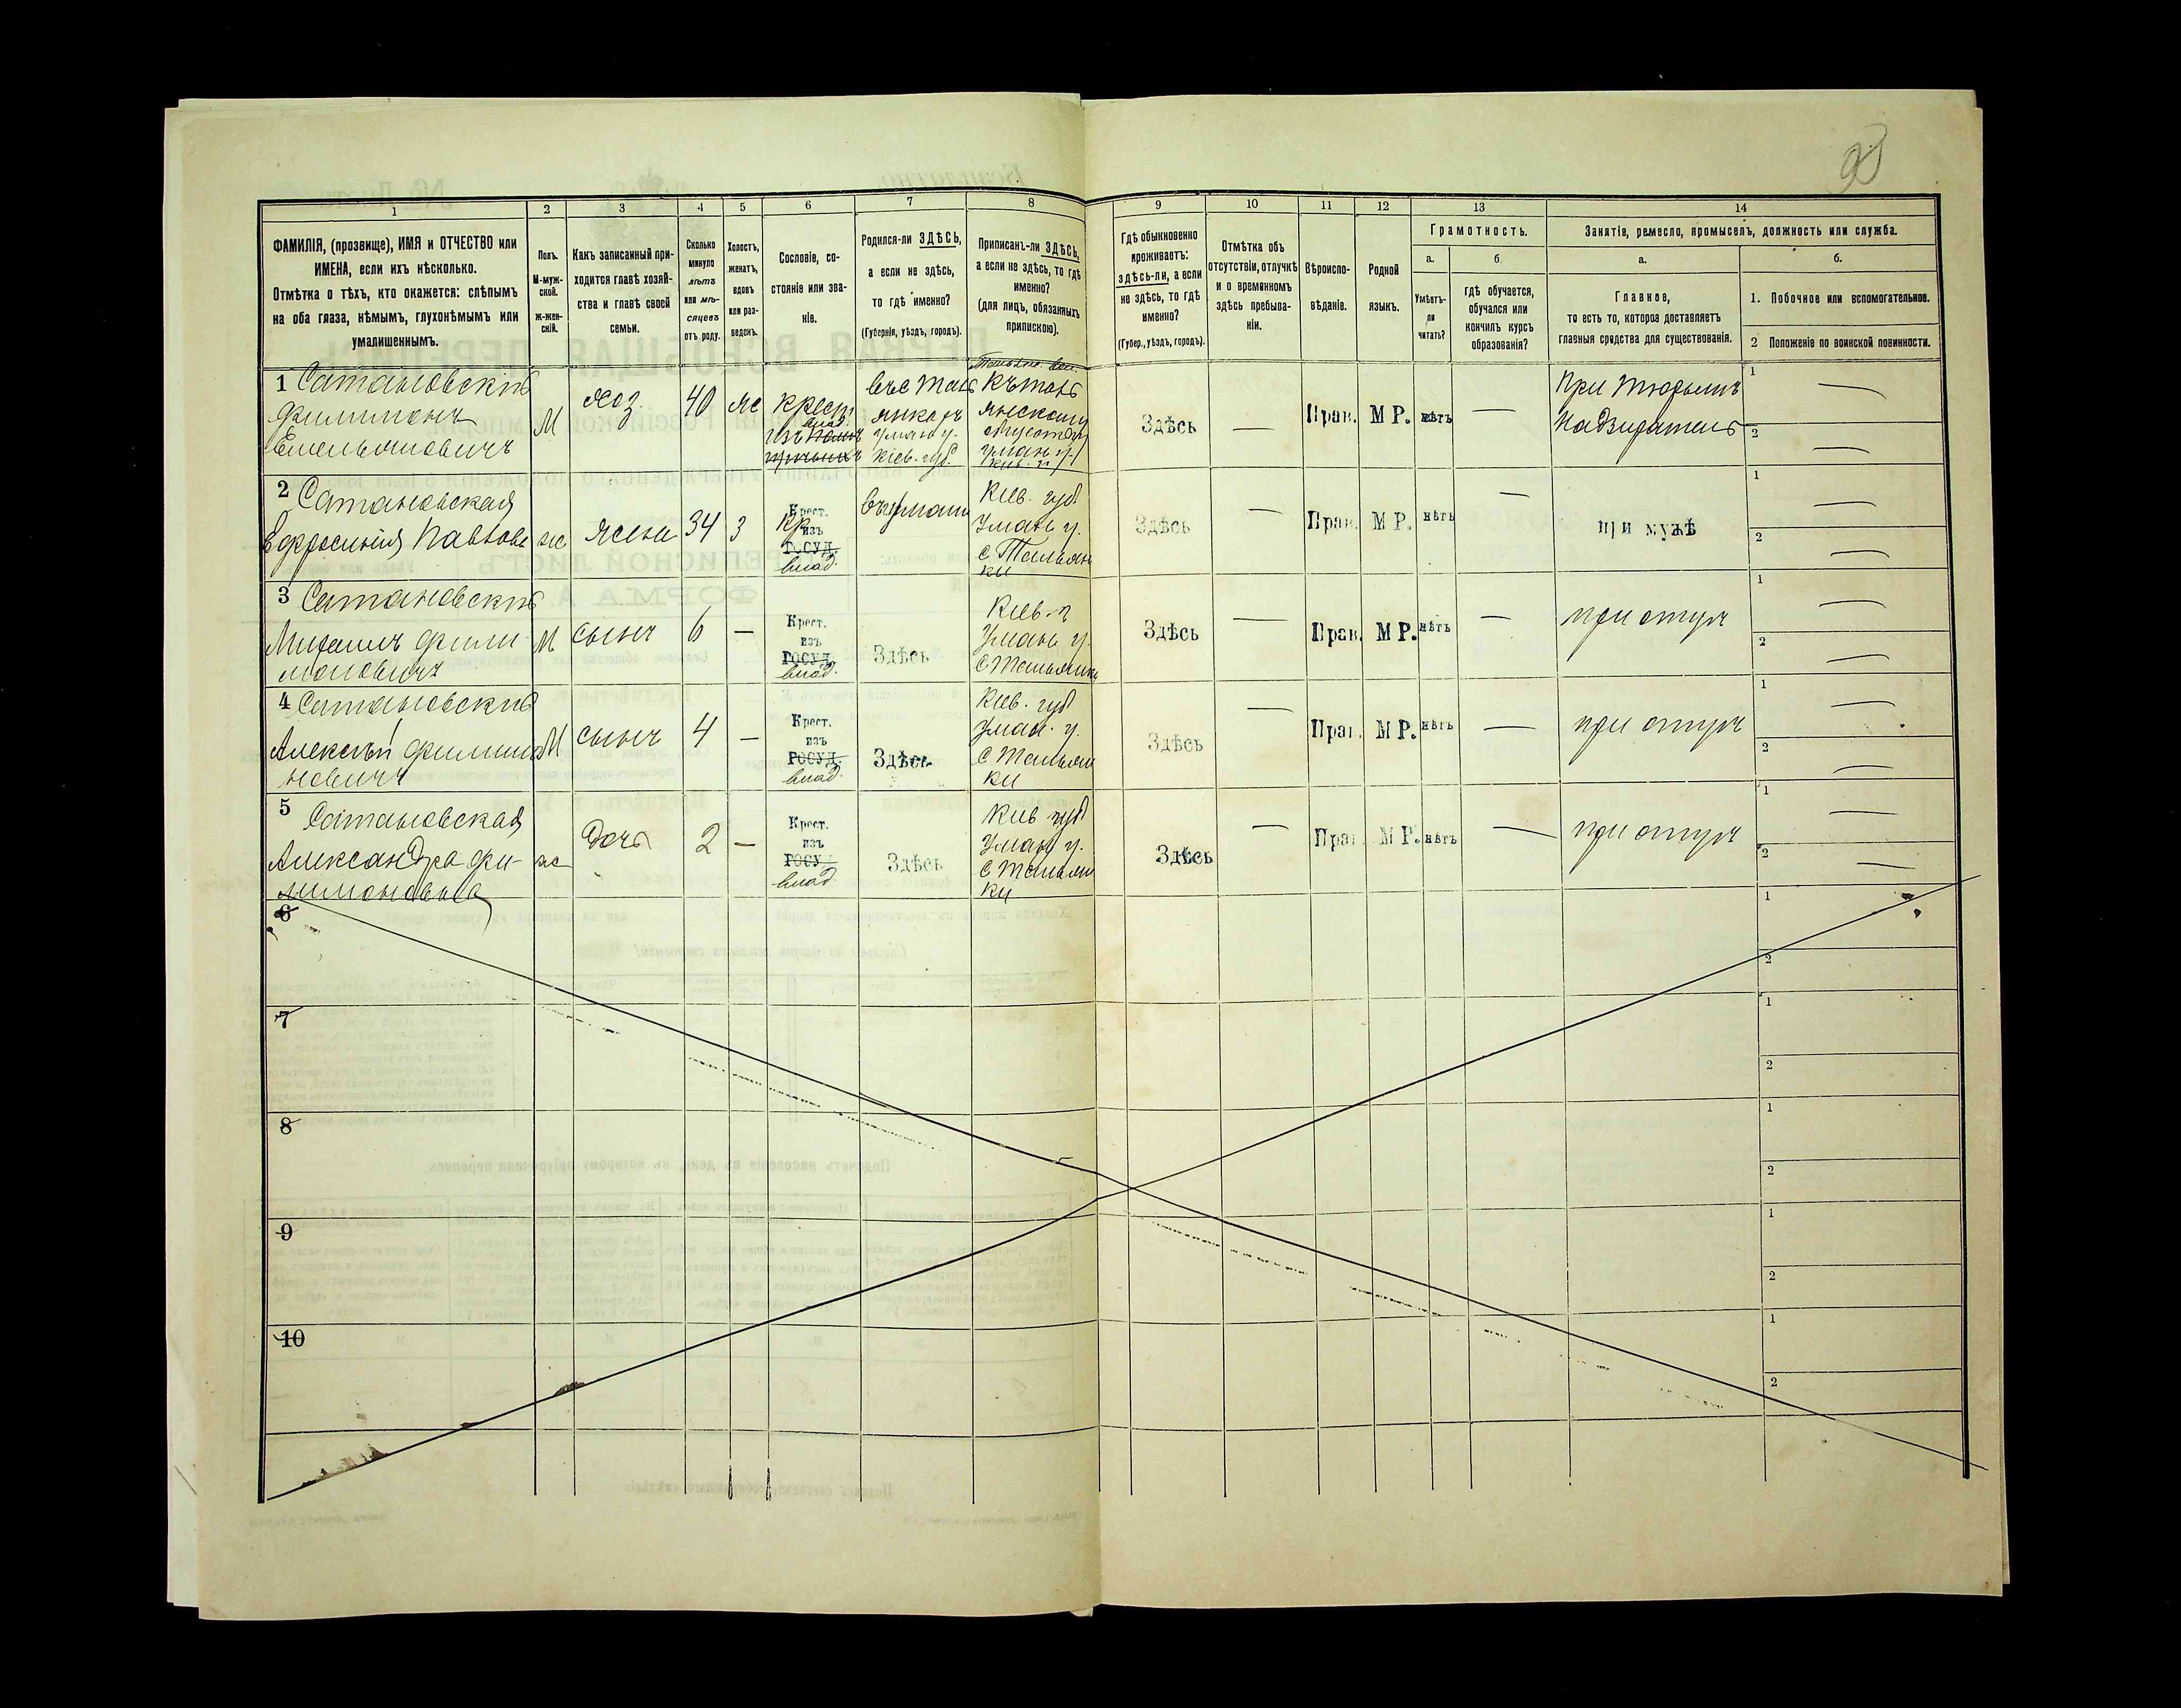 1
2
3
4
5
6
7
8
9
10
11
12
13
14
ФАМИЛІЯ, (прозвище), ИМЯ и ОТЧЕСТВО или
ИМЕНА, если ихъ нѣсколько.
Отмѣтка о тѣхъ, кто окажется: слѣпымъ
на оба глаза, нѣмымъ, глухонѣмымъ или
умалишеннымъ.
Полъ.
М-муж-
ской.
ж-жен-
скій.
Какъ записанный при-
ходится главѣ хозяй-
ства и главѣ своей
семьи.
Сколько
минуло
лѣтъ
или мѣ-
сяцевъ
отъ роду.
Холостъ,
женатъ,
вдовъ
или раз-
веденъ.
Сословіе, со-
стояніе или зва-
ніе.
Родился-ли ЗДѢСЬ,
а если не здѣсь,
то гдѣ именно?
(Губернія, уѣздъ, городъ).
Приписанъ-ли ЗДѢСЬ,
а если не здѣсь, то гдѣ
именно?
(для лицъ, обязанныхъ
припискою).
Гдѣ обыкновенно
проживаетъ:
здѣсь-ли, а если
не здѣсь, то гдѣ
именно?
(Губер., уѣздъ, городъ).
Отмѣтка объ
отсутствіи, отлучкѣ
и о временномъ
здѣсь пребыва-
ніи.
Вѣроиспо-
вѣданіе.
Родной
языкъ.
Грамотность.
а.
Умѣетъ-
ли
читать?
б
гдѣ обучается,
обучался или
кончилъ курсъ
образованія?
Занятіе, ремесло, промыселъ, должность или служба.
а.
Главное,
то есть то, которое доставляетъ
главныя средства для существованія.
б.
1. Побочное или вспомогательное.
2 Положеніе по воинской повинности.
1 Сатановскій
Филимонъ
Емельяновичъ
М
хоз.
40
же
крест.
изъ
влад.
въ с Таль
янкахъ
Уман у.
Кіев. губ.
къ таль
янскому
обществу
Уман у.
Здѣсь
—
Прав.
МР.
нѣтъ
—
При тюрьмѣ
Надзиратель
1 —
2 —
2 Сатановская
Ефросинія Павлова
ж
жена
34
З
Крест.
кр
изъ
ГОСУД.
влад.
въ Умани
Кіев. губ
Уман у.
с Тальян
ки
Здѣсь
—
Прав.
МР.
нѣтъ
при мужѣ
1 —
2 —
3 Сатановскій
Михаилъ Фили
моновичъ
М
сынъ
6
—
Крест.
изъ
ГОСУД.
влад.
Здѣсь
Кіев. г
Уман у.
с Тальянки
Здѣсь
—
Прав.
МР.
нѣтъ
—
при отцѣ
1 —
2 —
4 Сатановскій
Алексѣй Филимо
новичъ
М
сынъ
4
—
Крест.
изъ
ГОСУД.
влад.
Здѣсь
Кіев. губ
Уман. у.
с Тальян
ки
Здѣсь
—
Прав.
МР.
нѣтъ
—
при отцѣ
1 —
2 —
5 Сатановская
Александра Фи-
лимоновна
ж
дочь
2
—
Крест.
изъ
ГОСУД
влад
Здѣсь
Кіев губ
Уман у.
с Тальян
ки
Здѣсь
—
Прав
МР.
нѣтъ
—
при отцѣ
1 —
2 —
6
1
2
7
1
2
8
1
2
9
1
2
10
1
2